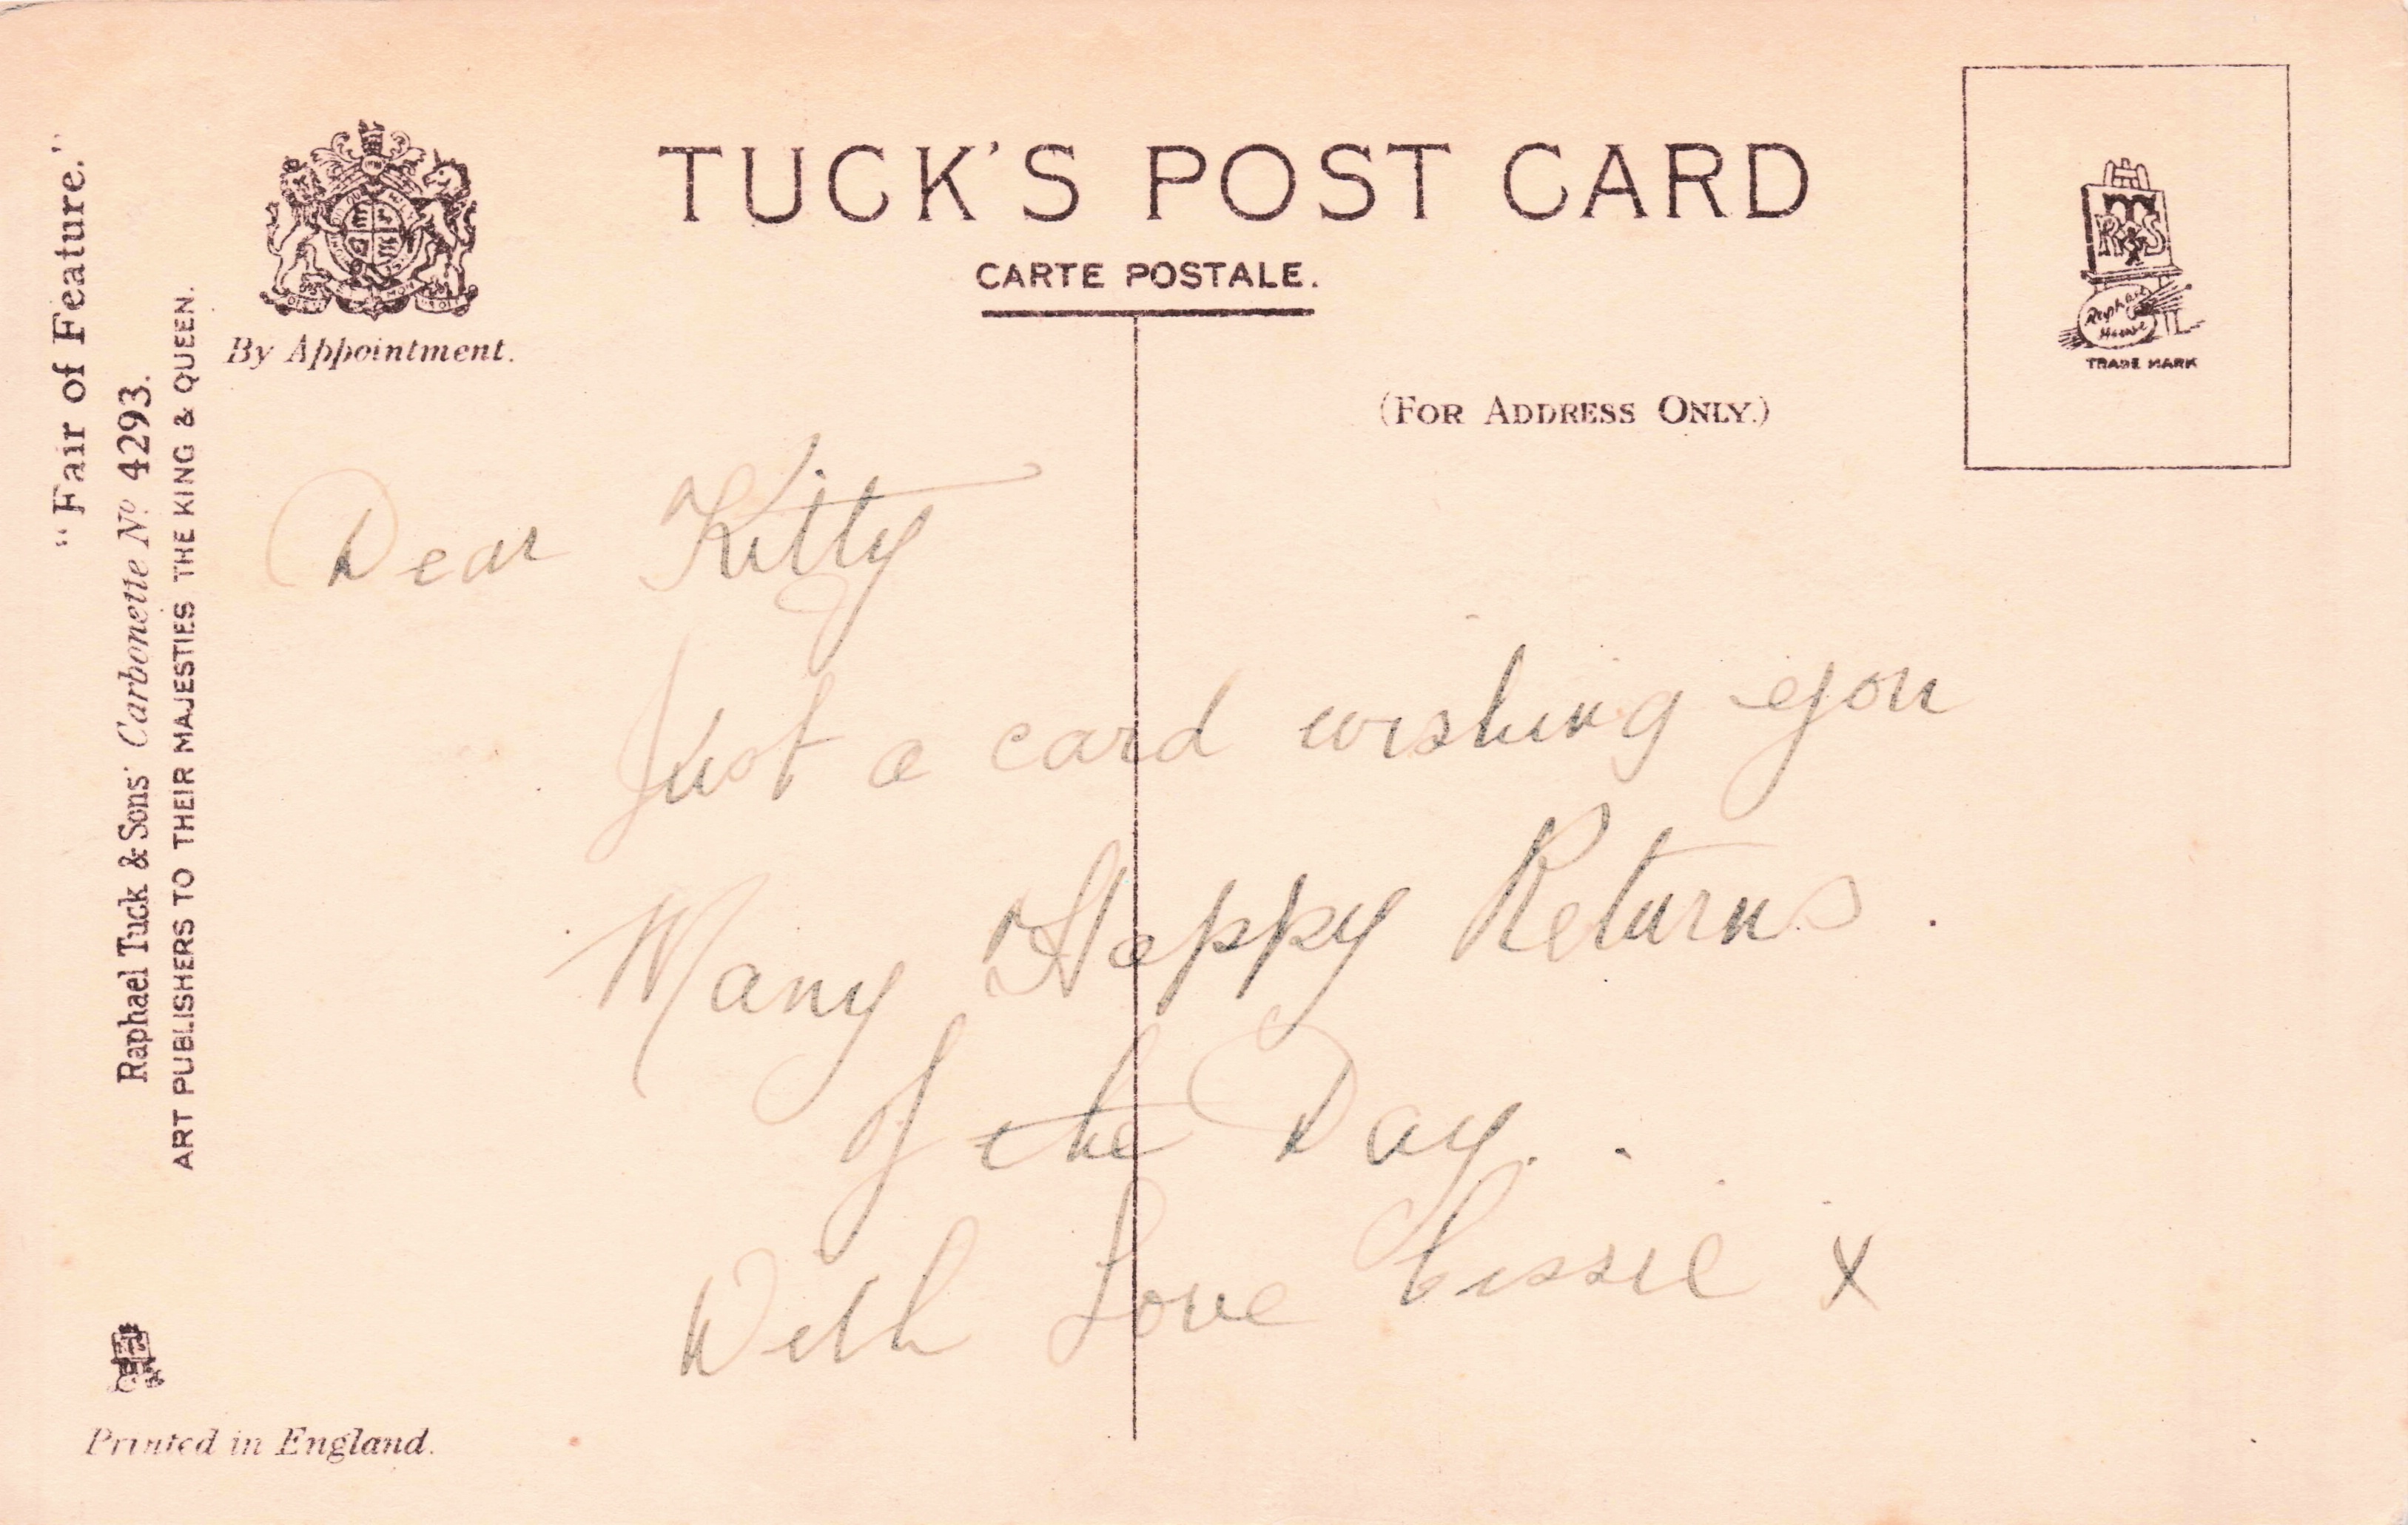 TUCK'S POST CARD
CARTE POSTALE.
By Appointment.
(FOR ADDRESS ONLY.)
"Fair of Feature."
Raphael Tuck & Sons' Carbonette No 4293.
ART PUBLISHERS TO THEIR MAJESTIES THE KING & QUEEN.
RTS
Raphael
House
TRADE MARK
Dear Kitty
Just a card wishing you
Many Happy Returns.
of the Day..
With Love Cissie x
Printed in England.